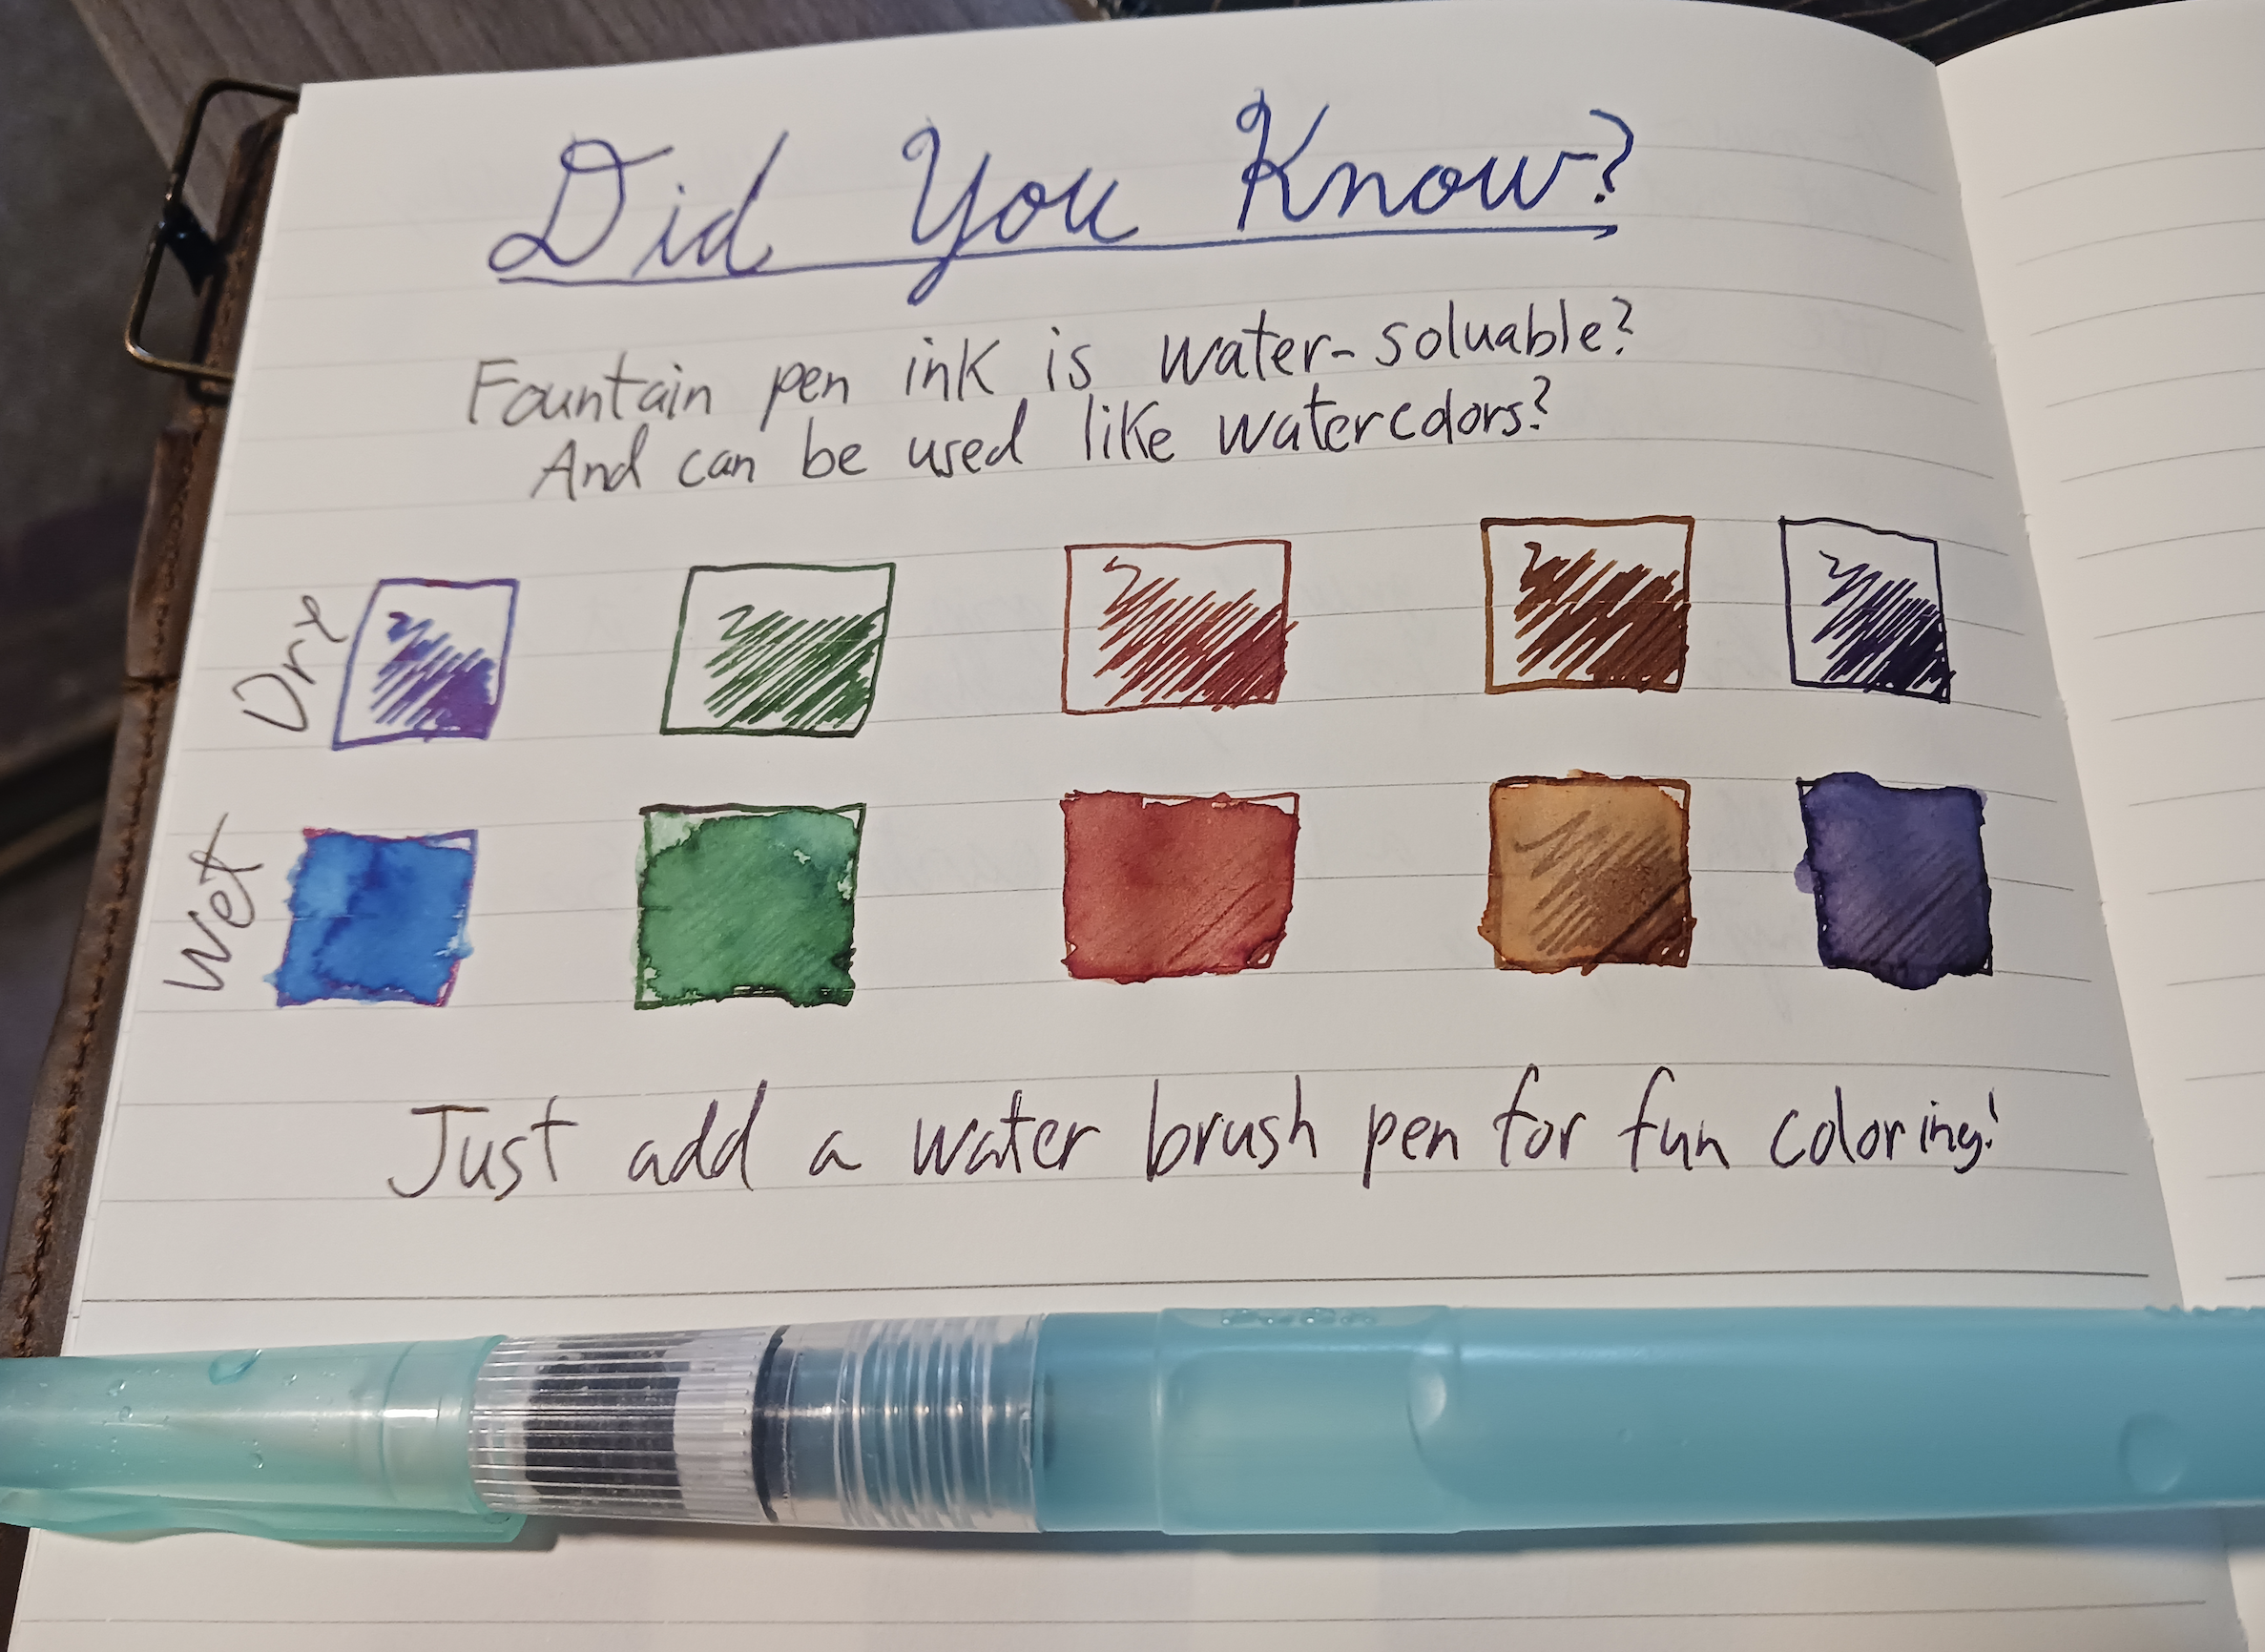 Did You Know?
Fountain pen ink is water-soluable?
And can be used like watercolors?
Dry
Wet
Just add a water brush pen for fun coloring!